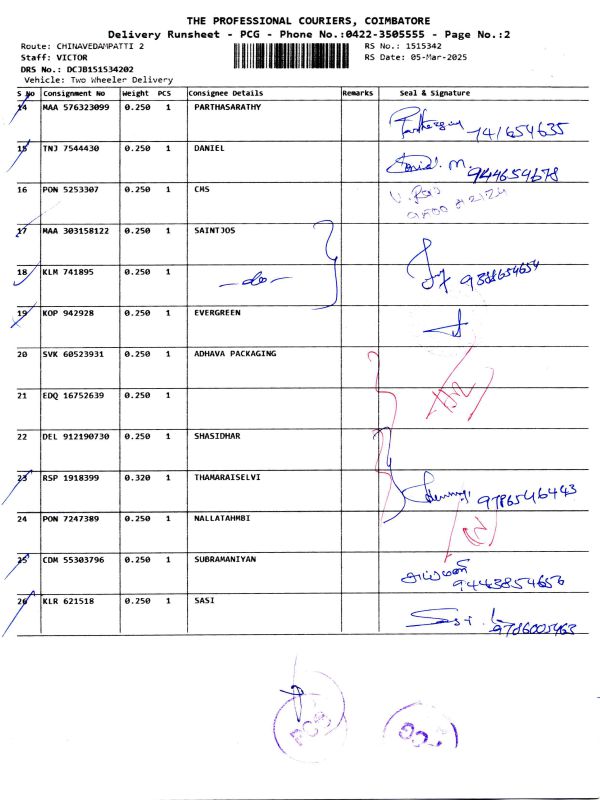 THE PROFESSIONAL COURIERS, COIMBATORE
Delivery Runsheet - PCG - Phone No.:0422-3505555 - Page No.:2
Route: CHINAVEDAMPATTI 2 RS No.: 1515342
Staff: VICTOR RS Date: 05-Mar-2025
DRS No.: DCJB151534202
Vehicle: Two Wheeler Delivery
S No Consignment No Weight PCS Consignee Details Remarks Seal & Signature
14 MAA 576323099 0.250 1 PARTHASARATHY
741654635
15 TNJ 7544430 0.250 1 DANIEL
Daniel. M. 944654678
16 PON 5253307 0.250 1 CMS
17 MAA 303158122 0.250 1 SAINTJOS
18 KLM 741895 0.250 1 -do- 9388654654
19 KOP 942928 0.250 1 EVERGREEN
20 SVK 60523931 0.250 1 ADHAVA PACKAGING
21 EDQ 16752639 0.250 1
22 DEL 912190730 0.250 1 SHASIDHAR
23 RSP 1918399 0.320 1 THAMARAISELVI
9786546443
24 PON 7247389 0.250 1 NALLATAHMBI
25 CDM 55303796 0.250 1 SUBRAMANIYAN
9443854656
26 KLR 621518 0.250 1 SASI
Sasi. 9786005463
PCG
PCG